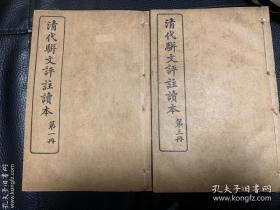 清代駢文評註讀本
第一冊
清代駢文評註讀本
第三冊
孔夫子旧书网